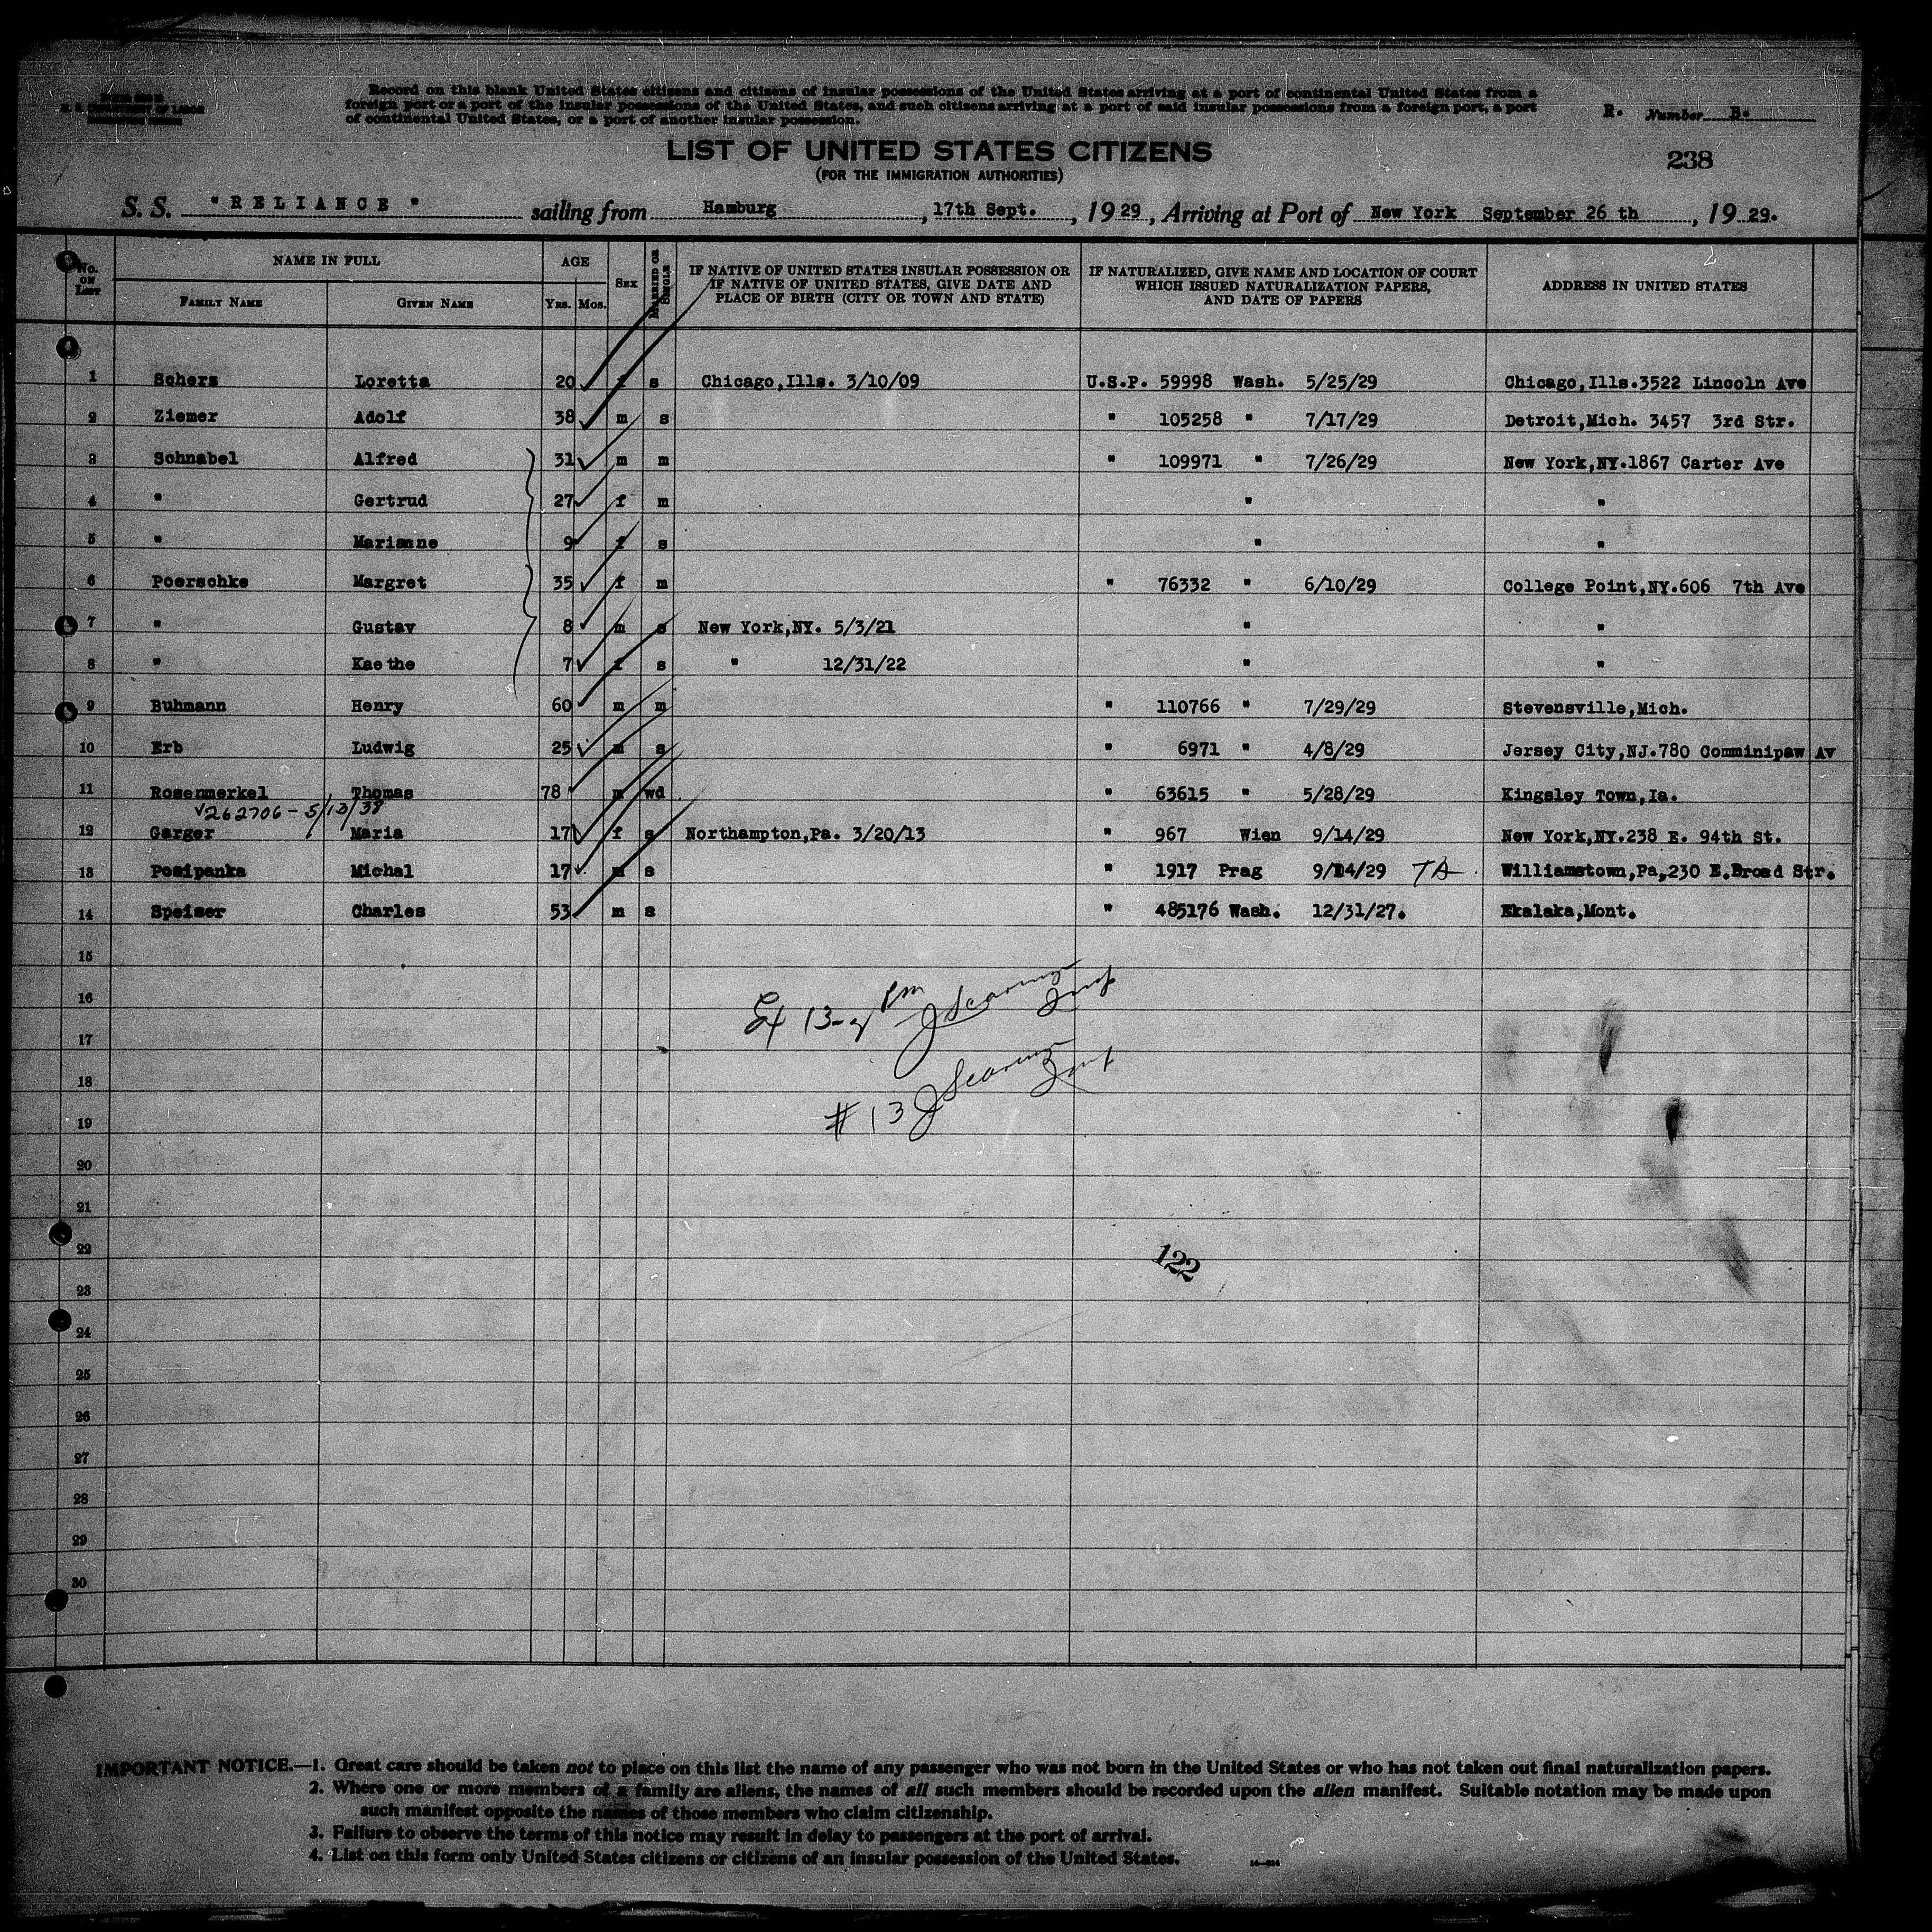 U. S. DEPARTMENT OF LABOR
Record on this blank United States citizens and citizens of insular possessions of the United States arriving at a port of continental United States from a
foreign port or a port of the insular possessions of the United States, and such citizens arriving at a port of said insular possessions from a foreign port, a port
of continental United States, or a port of another insular possession.
R. Number B.
LIST OF UNITED STATES CITIZENS
(FOR THE IMMIGRATION AUTHORITIES)
238
S. S. "RELIANCE" sailing from Hamburg, 17th Sept., 1929, Arriving at Port of New York September 26 th, 1929.
No. ON LIST
NAME IN FULL
FAMILY NAME GIVEN NAME
AGE
YRS. MOS.
SEX
MARRIED OR SINGLE
IF NATIVE OF UNITED STATES INSULAR POSSESSION OR
IF NATIVE OF UNITED STATES, GIVE DATE AND
PLACE OF BIRTH (CITY OR TOWN AND STATE)
IF NATURALIZED, GIVE NAME AND LOCATION OF COURT
WHICH ISSUED NATURALIZATION PAPERS,
AND DATE OF PAPERS
ADDRESS IN UNITED STATES
1 Schers Loretta 20 f s Chicago,Ills. 3/10/09 U.S.P. 59998 Wash. 5/25/29 Chicago,Ills.3522 Lincoln Ave
2 Ziemer Adolf 38 m s " 105258 " 7/17/29 Detroit,Mich. 3457 3rd Str.
3 Schnabel Alfred 31 m m " 109971 " 7/26/29 New York,NY.1867 Carter Ave
4 " Gertrud 27 f m " "
5 " Marianne 9 f s " "
6 Poerschke Margret 35 f m " 76332 " 6/10/29 College Point,NY.606 7th Ave
7 " Gustav 8 m s New York,NY. 5/3/21 " "
8 " Kaethe 7 f s " 12/31/22 " "
9 Buhmann Henry 60 m m " 110766 " 7/29/29 Stevensville,Mich.
10 Erb Ludwig 25 m s " 6971 " 4/8/29 Jersey City,NJ.780 Comminipaw Av
11 Rosenmerkel Thomas 78 m wd " 63615 " 5/28/29 Kingsley Town,Ia.
v262706 - 5/13/38
12 Garger Maria 17 f s Northampton,Pa. 3/20/13 " 967 Wien 9/14/29 New York,NY.238 E. 94th St.
13 Posipanka Michal 17 m s " 1917 Prag 9/14/29 TA Williamstown,Pa,230 E.Broad Str.
14 Speiser Charles 53 m s " 485176 Wash. 12/31/27. Ekalaka,Mont.
15
16
17
18
# 13
19
20
21
22
122
23
24
25
26
27
28
29
30
IMPORTANT NOTICE.—1. Great care should be taken not to place on this list the name of any passenger who was not born in the United States or who has not taken out final naturalization papers.
2. Where one or more members of a family are aliens, the names of all such members should be recorded upon the alien manifest. Suitable notation may be made upon
such manifest opposite the names of those members who claim citizenship.
3. Failure to observe the terms of this notice may result in delay to passengers at the port of arrival.
4. List on this form only United States citizens or citizens of an insular possession of the United States.